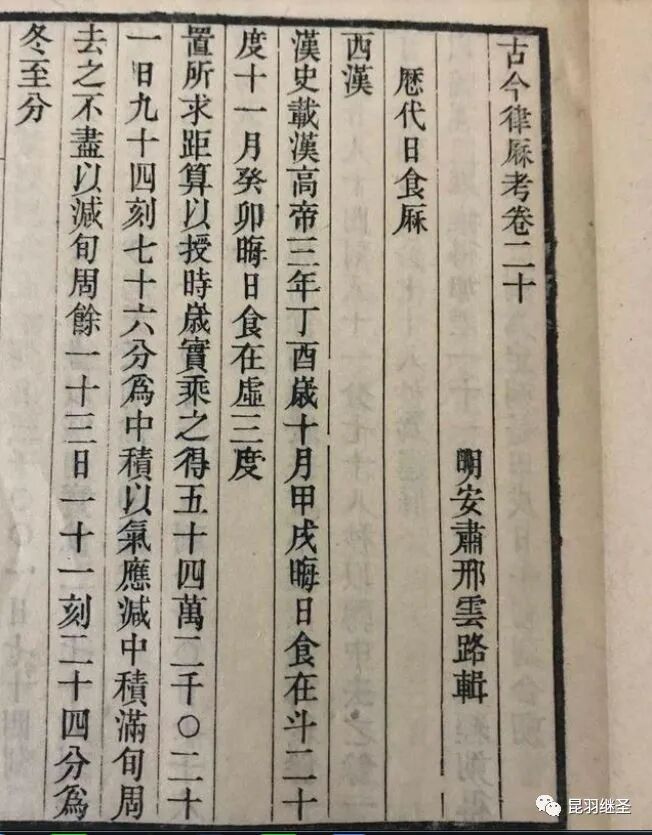 古今律厤考卷二十
明安肅邢雲路輯
歴代日食厤
西漢
漢史載漢高帝三年丁酉歳十月甲戌晦日食在斗二十
度十一月癸卯晦日食在虛三度
置所求距算以授時歳實乘之得五十四萬二千〇二十
一日九十四刻七十六分爲中積以氣應減中積滿旬周
去之不盡以減旬周餘一十三日一十一刻二十四分爲
冬至分
昆羽继圣